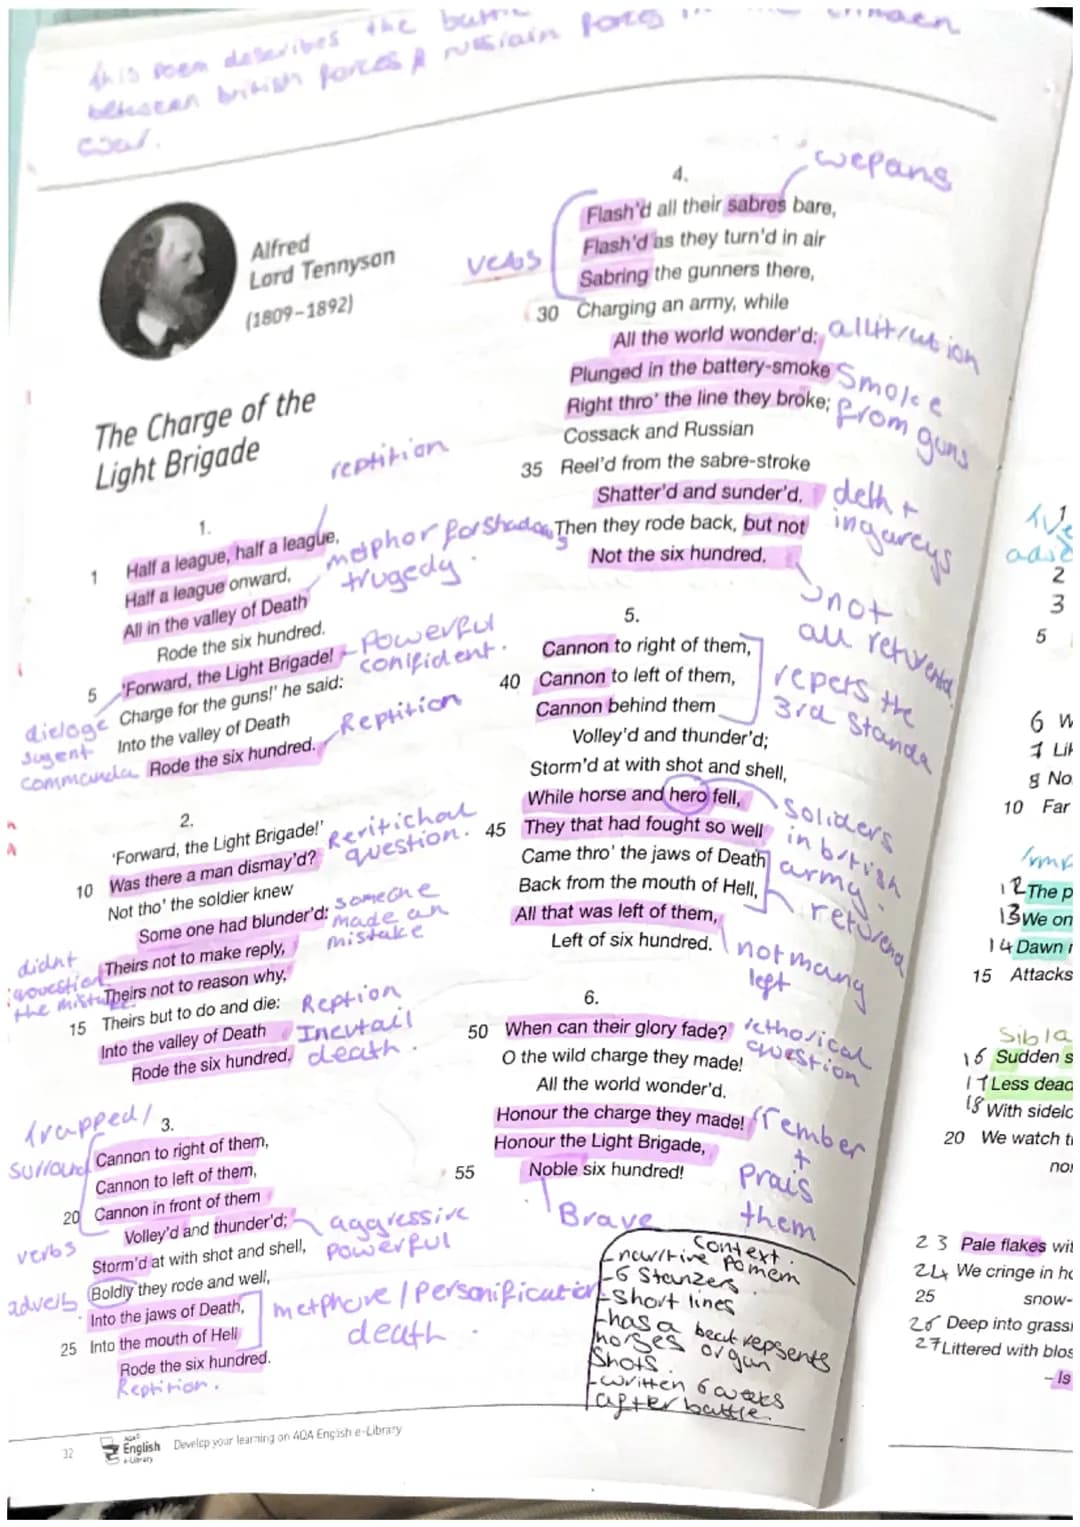 this poem describes the battle
between british forces & russiain forces in the crimaen
war.
Alfred
Lord Tennyson
(1809–1892)
The Charge of the
Light Brigade
reptition
1.
1 Half a league, half a league,
Half a league onward,
All in the valley of Death
Rode the six hundred.
5 'Forward, the Light Brigade!
Charge for the guns!' he said:
Into the valley of Death
Rode the six hundred.
metphor forshadows
trugedy.
Powerful
conifident.
dieloge
sugent
commanda
Reptition
2.
'Forward, the Light Brigade!'
10 Was there a man dismay'd?
Not tho' the soldier knew
Some one had blunder'd:
Theirs not to make reply,
Theirs not to reason why,
15 Theirs but to do and die:
Into the valley of Death
Rode the six hundred.
Reritichal
question.
someone
made an
mistake
didnt
question
the mistake
Reption
Inevtail
death.
trapped/
surround
3.
Cannon to right of them,
Cannon to left of them,
20 Cannon in front of them
Volley'd and thunder'd;
Storm'd at with shot and shell,
Boldly they rode and well,
Into the jaws of Death,
25 Into the mouth of Hell
Rode the six hundred.
verbs
adverb
aggressive
powerful
metphore/personification
death.
Reptition.
4.
wepans
Flash'd all their sabres bare,
Flash'd as they turn'd in air
Sabring the gunners there,
30 Charging an army, while
All the world wonder'd:
Plunged in the battery-smoke
Right thro' the line they broke;
Cossack and Russian
35 Reel'd from the sabre-stroke
Shatter'd and sunder'd.
Then they rode back, but not
Not the six hundred.
verbs
allitrution
Smoke
from guns
deth +
ingareys
not
all returend
5.
Cannon to right of them,
40 Cannon to left of them,
Cannon behind them
Volley'd and thunder'd;
Storm'd at with shot and shell,
While horse and hero fell,
45 They that had fought so well
Came thro' the jaws of Death
Back from the mouth of Hell,
All that was left of them,
Left of six hundred.
repers the
3rd standa
Soliders
in british
army.
returend
not many
left
6.
50 When can their glory fade?
O the wild charge they made!
All the world wonder'd.
Honour the charge they made!
Honour the Light Brigade,
55 Noble six hundred!
rethorical
question
rember
+
prais
them
Brave
Context.
- nawritive pomem
- 6 Stanzers.
- Short lines
- has a beat repsents
horses or gun
shots.
- written 6 weeks
after battle.
32 AQA English e-Library Develop your learning on AQA English e-Library
1
2
3
5
6 W
7 Lik
8 No
10 Far
12 The p
13 We on
14 Dawn
15 Attacks
Sibla
16 Sudden s
17 Less dead
18 With sidelo
20 We watch t
23 Pale flakes wit
24 We cringe in ho
25 snow-
26 Deep into grass
27 Littered with blos
– Is